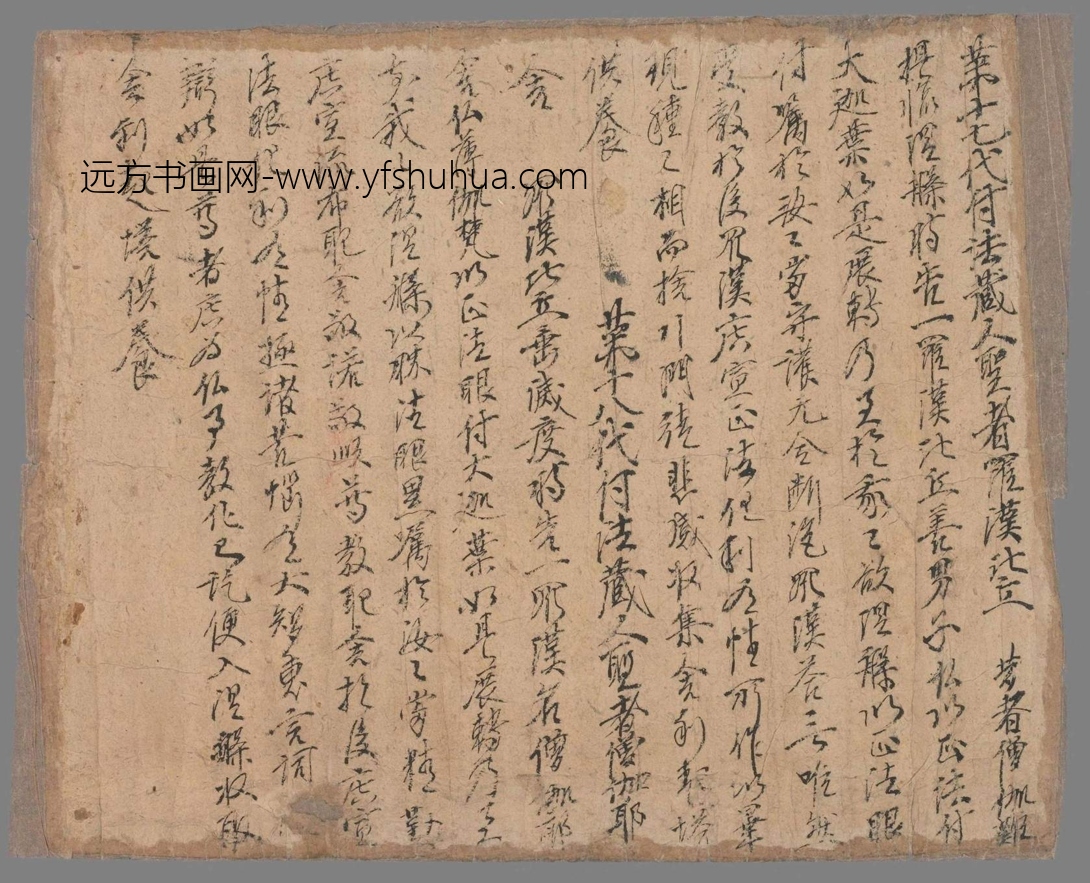 第十七代付法藏人聖者羅漢比丘 昔者僧伽難
提臨涅槃時告一羅漢比丘善男子仏以正法付
大迦葉如是展轉乃至於我々欲涅槃以正法眼
付囑於汝々當守護无令斷絕羅漢答言唯然
受教於後羅漢広宣正法任利有情所作以畢
現種々相而捨行門徒悲感收集舍利起塔
供養
第十八代付法藏人聖者僧伽耶
舍 羅漢比丘垂滅度時告一羅漢名僧伽耶
舍仏薄伽梵以正法眼付大迦葉如是展轉乃至
於我々欲涅槃以勝法眼累囑於汝々當精勤
広宣流布耶舍敬諾敬順尊教耶舍於後広宣
法眼任利有情極諸苦惱有大智惠言詞
辯 此是尊者広為仏事教化已訖便入涅槃收取
舍利起塔供養
远方书画网-www.yfshuhua.com